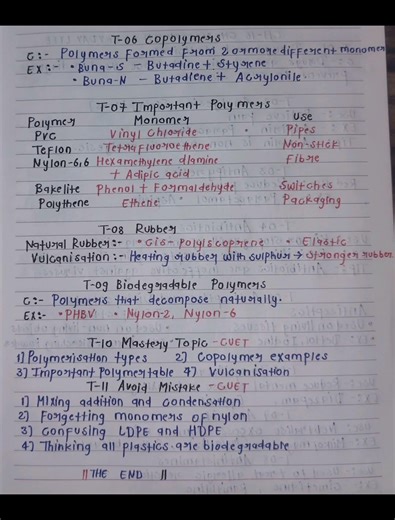 T-06 Copolymers
C:- Polymers formed from 2 or more different monomer
EX:- • Buna-S - Butadine + Styrene
• Buna-N - Butadiene + Acrylonile.
T-07 Important Polymers
Polymer Monomer Use
PVC Vinyl Chloride • Pipes
Teflon Tetrafluoroethene Non-stick
Nylon-6,6 Hexamethylene diamine Fibre
+ Adipic acid
Bakelite Phenol + Formaldehyde Switches
Polythene Ethene Packaging
T-08 Rubber
Natural Rubber:- • Cis-Polyisoprene • Elastic
Vulcanisation:- Heating rubber with sulphur → Stronger rubber.
T-09 Biodegradable Polymers
C:- Polymers that decompose naturally.
EX:- • PHBV • Nylon-2, Nylon-6
T-10 Mastery Topic - CUET
1] Polymerisation types 2] Copolymer examples
3] Important Polymer table 4] Vulcanisation
T-11 Avoid Mistake - CUET
1] Mixing addition and condensation
2] Forgetting monomers of nylon
3] Confusing LDPE and HDPE
4] Thinking all plastics are biodegradable
|| THE END ||